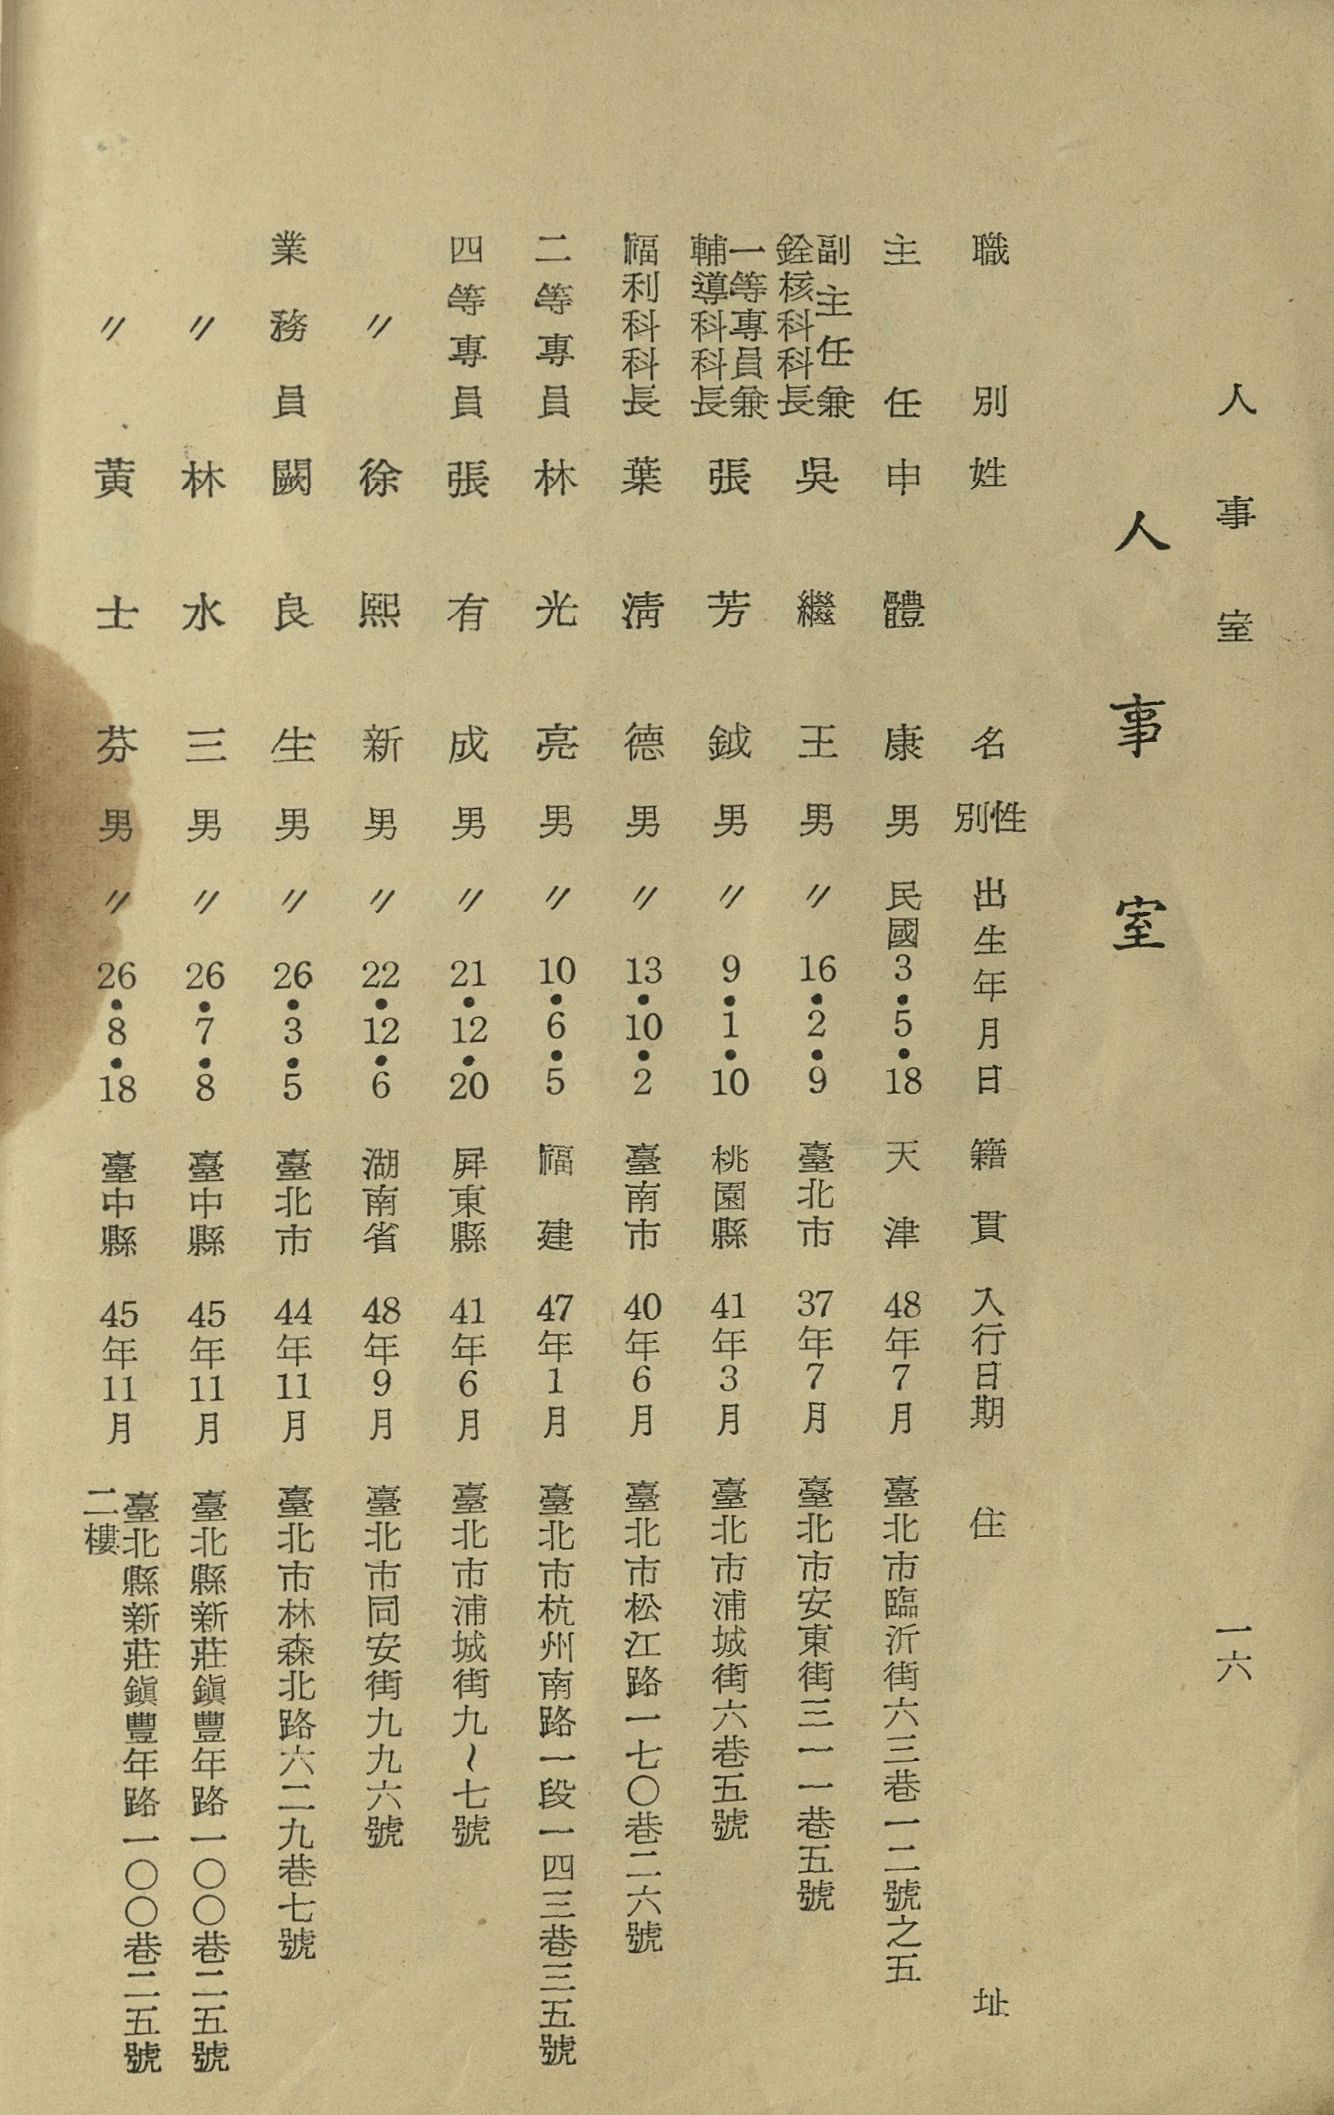 人事室
一六
人事室
職別 姓名 性別 出生年月日 籍貫 入行日期 住址
主任 申體康 男 民國3•5•18 天津 48年7月 臺北市臨沂街六三巷一二號之五
副主任兼銓核科科長 吳繼王 男 〃16•2•9 臺北市 37年7月 臺北市安東街三一一巷五號
一等專員兼輔導科科長 張芳鉞 男 〃9•1•10 桃園縣 41年3月 臺北市浦城街六巷五號
福利科科長 葉淸德 男 〃13•10•2 臺南市 40年6月 臺北市松江路一七〇巷二六號
二等專員 林光亮 男 〃10•6•5 福建 47年1月 臺北市杭州南路一段一四三巷三五號
四等專員 張有成 男 〃21•12•20 屛東縣 41年6月 臺北市浦城街九~七號
〃 徐熙新 男 〃22•12•6 湖南省 48年9月 臺北市同安街九九六號
業務員 闕良生 男 〃26•3•5 臺北市 44年11月 臺北市林森北路六二九巷七號
〃 林水三 男 〃26•7•8 臺中縣 45年11月 臺北縣新莊鎭豐年路一〇〇巷二五號
〃 黃士芬 男 〃26•8•18 臺中縣 45年11月 臺北縣新莊鎭豐年路一〇〇巷二五號
二樓